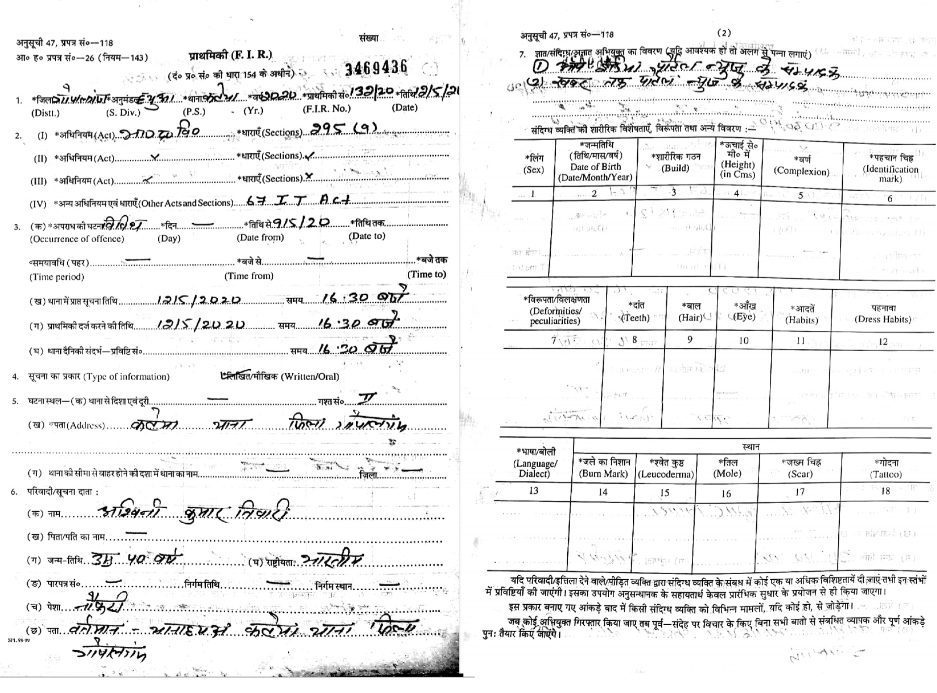 अनुसूची 47, प्रपत्र सं०—118
संख्या
आ० ह० प्रपत्र सं०—26 (नियम—143)
प्राथमिकी (F. I. R.)
(दं० प्र० सं० की धारा 154 के अधीन)
3469436
1. *जिला गोपालगंज *अनुमंडल हथुआ *थाना कटेया *वर्ष 2020 *प्राथमिकी सं० 132/20 *तिथि 12/5/20
(Distt.) (S. Div.) (P.S.) - (Yr.) (F.I.R. No.) (Date)
2. (I) *अधिनियम (Act) भा०द०वि० *धाराएँ (Sections) 295 (A)
(II) *अधिनियम (Act) *धाराएँ (Sections)
(III) *अधिनियम (Act) *धाराएँ (Sections)
(IV) *अन्य अधिनियम एवं धाराएँ (Other Acts and Sections) 67 I T Act
3. (क) *अपराध की घटना *दिन — *तिथि से 9/5/20 *तिथि तक
(Occurrence of offence) (Day) (Date from) (Date to)
*समयावधि (पहर) — *बजे से — *बजे तक
(Time period) (Time from) (Time to)
(ख) थाना में प्राप्त सूचना तिथि 12/5/2020 समय 16.30 बजे
(ग) प्राथमिकी दर्ज करने की तिथि 12/5/2020 समय 16.30 बजे
(घ) थाना दैनिकी संदर्भ—प्रविष्टि सं० समय 16.30 बजे
4. सूचना का प्रकार (Type of information) लिखित/मौखिक (Written/Oral)
5. घटना स्थल—(क) थाना से दिशा एवं दूरी — गश्त सं० II
(ख) *पता (Address) कटेया थाना जिला गोपालगंज
(ग) थाना की सीमा से बाहर होने की दशा में थाना का नाम — जिला —
6. परिवादी/सूचना दाता :
(क) नाम अश्विनी कुमार तिवारी
(ख) पिता/पति का नाम —
(ग) जन्म-तिथि उम्र 40 वर्ष (घ) राष्ट्रीयता: भारतीय
(ङ) पारपत्र सं० — निर्गम तिथि — निर्गम स्थान —
(च) पेशा नौकरी
(छ) पता वर्तमान - थानाध्यक्ष कटेया थाना जिला
गोपालगंज
अनुसूची 47, प्रपत्र सं०—118 (2)
7. ज्ञात/संदिग्ध/अज्ञात अभियुक्त का विवरण (यदि आवश्यक हो तो अलग से पन्ना लगाएं)
(1) पोर्टल न्यूज के सम्पादक
(2) खबर तक पोर्टल न्यूज के सम्पादक
संदिग्ध व्यक्ति की शारीरिक विशेषताएँ, विरूपता तथा अन्य विवरण :—
*लिंग (Sex) *जन्मतिथि (तिथि/मास/वर्ष) Date of Birth (Date/Month/Year) *शारीरिक गठन (Build) *ऊचाई से० मी० में (Height) (in Cms) *वर्ण (Complexion) *पहचान चिह्न (Identification mark)
1 2 3 4 5 6
*विरूपता/विलक्षणता (Deformities/ peculiarities) *दांत (Teeth) *बाल (Hair) *आँख (Eye) *आदतें (Habits) पहनावा (Dress Habits)
7 8 9 10 11 12
*भाषा/बोली (Language/ Dialect) स्थान
*जले का निशान (Burn Mark) *श्वेत कुष्ठ (Leucoderma) *तिल (Mole) *जख्म चिह्न (Scar) *गोदना (Tattco)
13 14 15 16 17 18
यदि परिवादी/इत्तिला देने वाले/पीड़ित व्यक्ति द्वारा संदिग्ध व्यक्ति के संबंध में कोई एक या अधिक विशिष्टतायें दी जाएं तभी इन स्तंभों
में प्रविष्टियाँ की जाएंगी। इसका उपयोग अनुसन्धानक के सहायतार्थ केवल प्रारंभिक सुधार के प्रयोजन से ही किया जाएगा।
इस प्रकार बनाए गए आंकड़े बाद में किसी संदिग्ध व्यक्ति को विभिन्न मामलों, यदि कोई हो, से जोड़ेगा।
जब कोई अभियुक्त गिरफ्तार किया जाए तब पूर्व—संदेह पर विचार के किए बिना सभी बातो से संबंधित व्यापक और पूर्ण आंकड़े
पुनः तैयार किए जाएंगे।